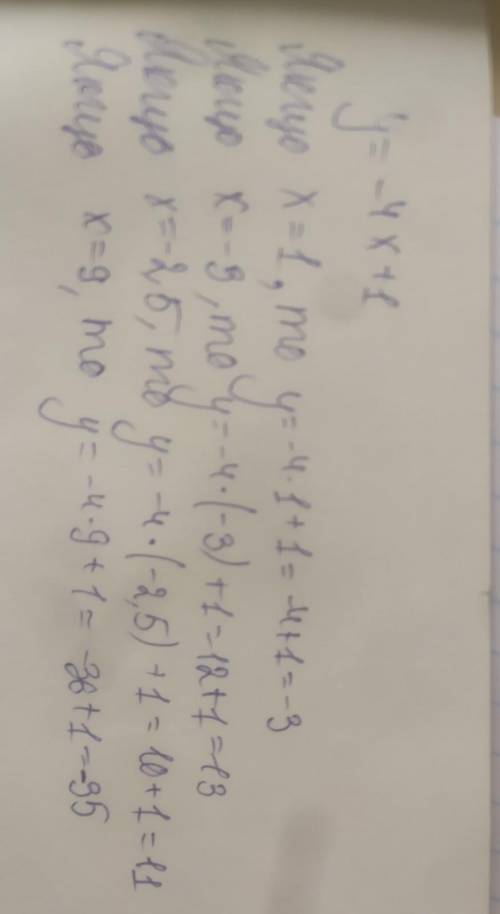 y = -4x+1
Якщо x = 1, то y = -4·1+1 = -4+1 = -3
Якщо x = -3, то y = -4·(-3)+1 = 12+1 = 13
Якщо x = -2,5, то y = -4·(-2,5)+1 = 10+1 = 11
Якщо x = 9, то y = -4·9+1 = -36+1 = -35